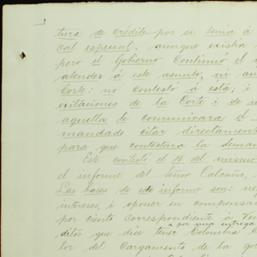 tura de crédito por su suma á
cal especial, aunque existia
pero el Gobierno Continuo el
atender á este asunto, ni au
Corte: no contestó á esta; i
excitaciones de la Corte i de
aquella de comunicara el
mandado citar directament
para que contestara la deman
Este contestó el 11 del mismo
el informe del Señor Calcaño,
Las bases de este informe son: ne
intereses, i oponer en compensa
por ciento correspondiente á Ve
a por una entrega
ditos que dice tener Colombia C
lor del Cargamento de la go